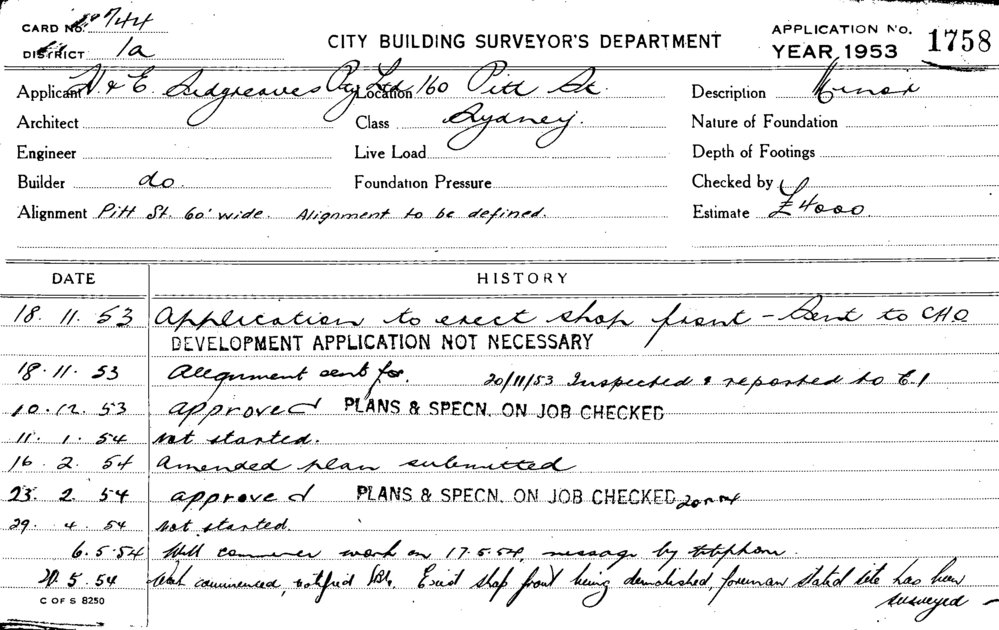 CARD No. 744
CITY BUILDING SURVEYOR'S DEPARTMENT
APPLICATION No. 1758
DISTRICT 1a
YEAR 1953
Applicant H. & E. Sidgreaves Pty Ltd Location 160 Pitt St. Description Minor
Architect Class Sydney. Nature of Foundation
Engineer Live Load Depth of Footings
Builder do. Foundation Pressure Checked by
Alignment Pitt St. 60' wide. Alignment to be defined. Estimate £4000.
DATE HISTORY
18. 11. 53 Application to erect shop front - Sent to CHO
DEVELOPMENT APPLICATION NOT NECESSARY
18.11.53 Alignment sent for. 20/11/53 Inspected & reported to C.I
10.12.53 approved PLANS & SPECN. ON JOB CHECKED
11. 1. 54 Not started.
16. 2. 54 Amended plan submitted
23. 2. 54 approved PLANS & SPECN. ON JOB CHECKED
29. 4. 54 Not started.
6.5.54 Will commence work on 17.5.54, message by telephone.
20.5.54 Work commenced, notified Exist shop front being demolished, foreman stated site has been
surveyed -
C OF S 8250